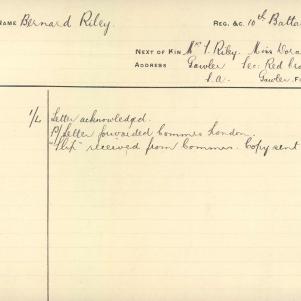 NAME Bernard Riley. REG. &C. 10th Batta
NEXT OF KIN Mr T. Riley. Miss Dora
ADDRESS Gawler Sec: Red Cro
S.A. Gawler.
Letter acknowledged.
P/ letter forwarded Commrs London.
"Slip" received from Commrs. Copy sent